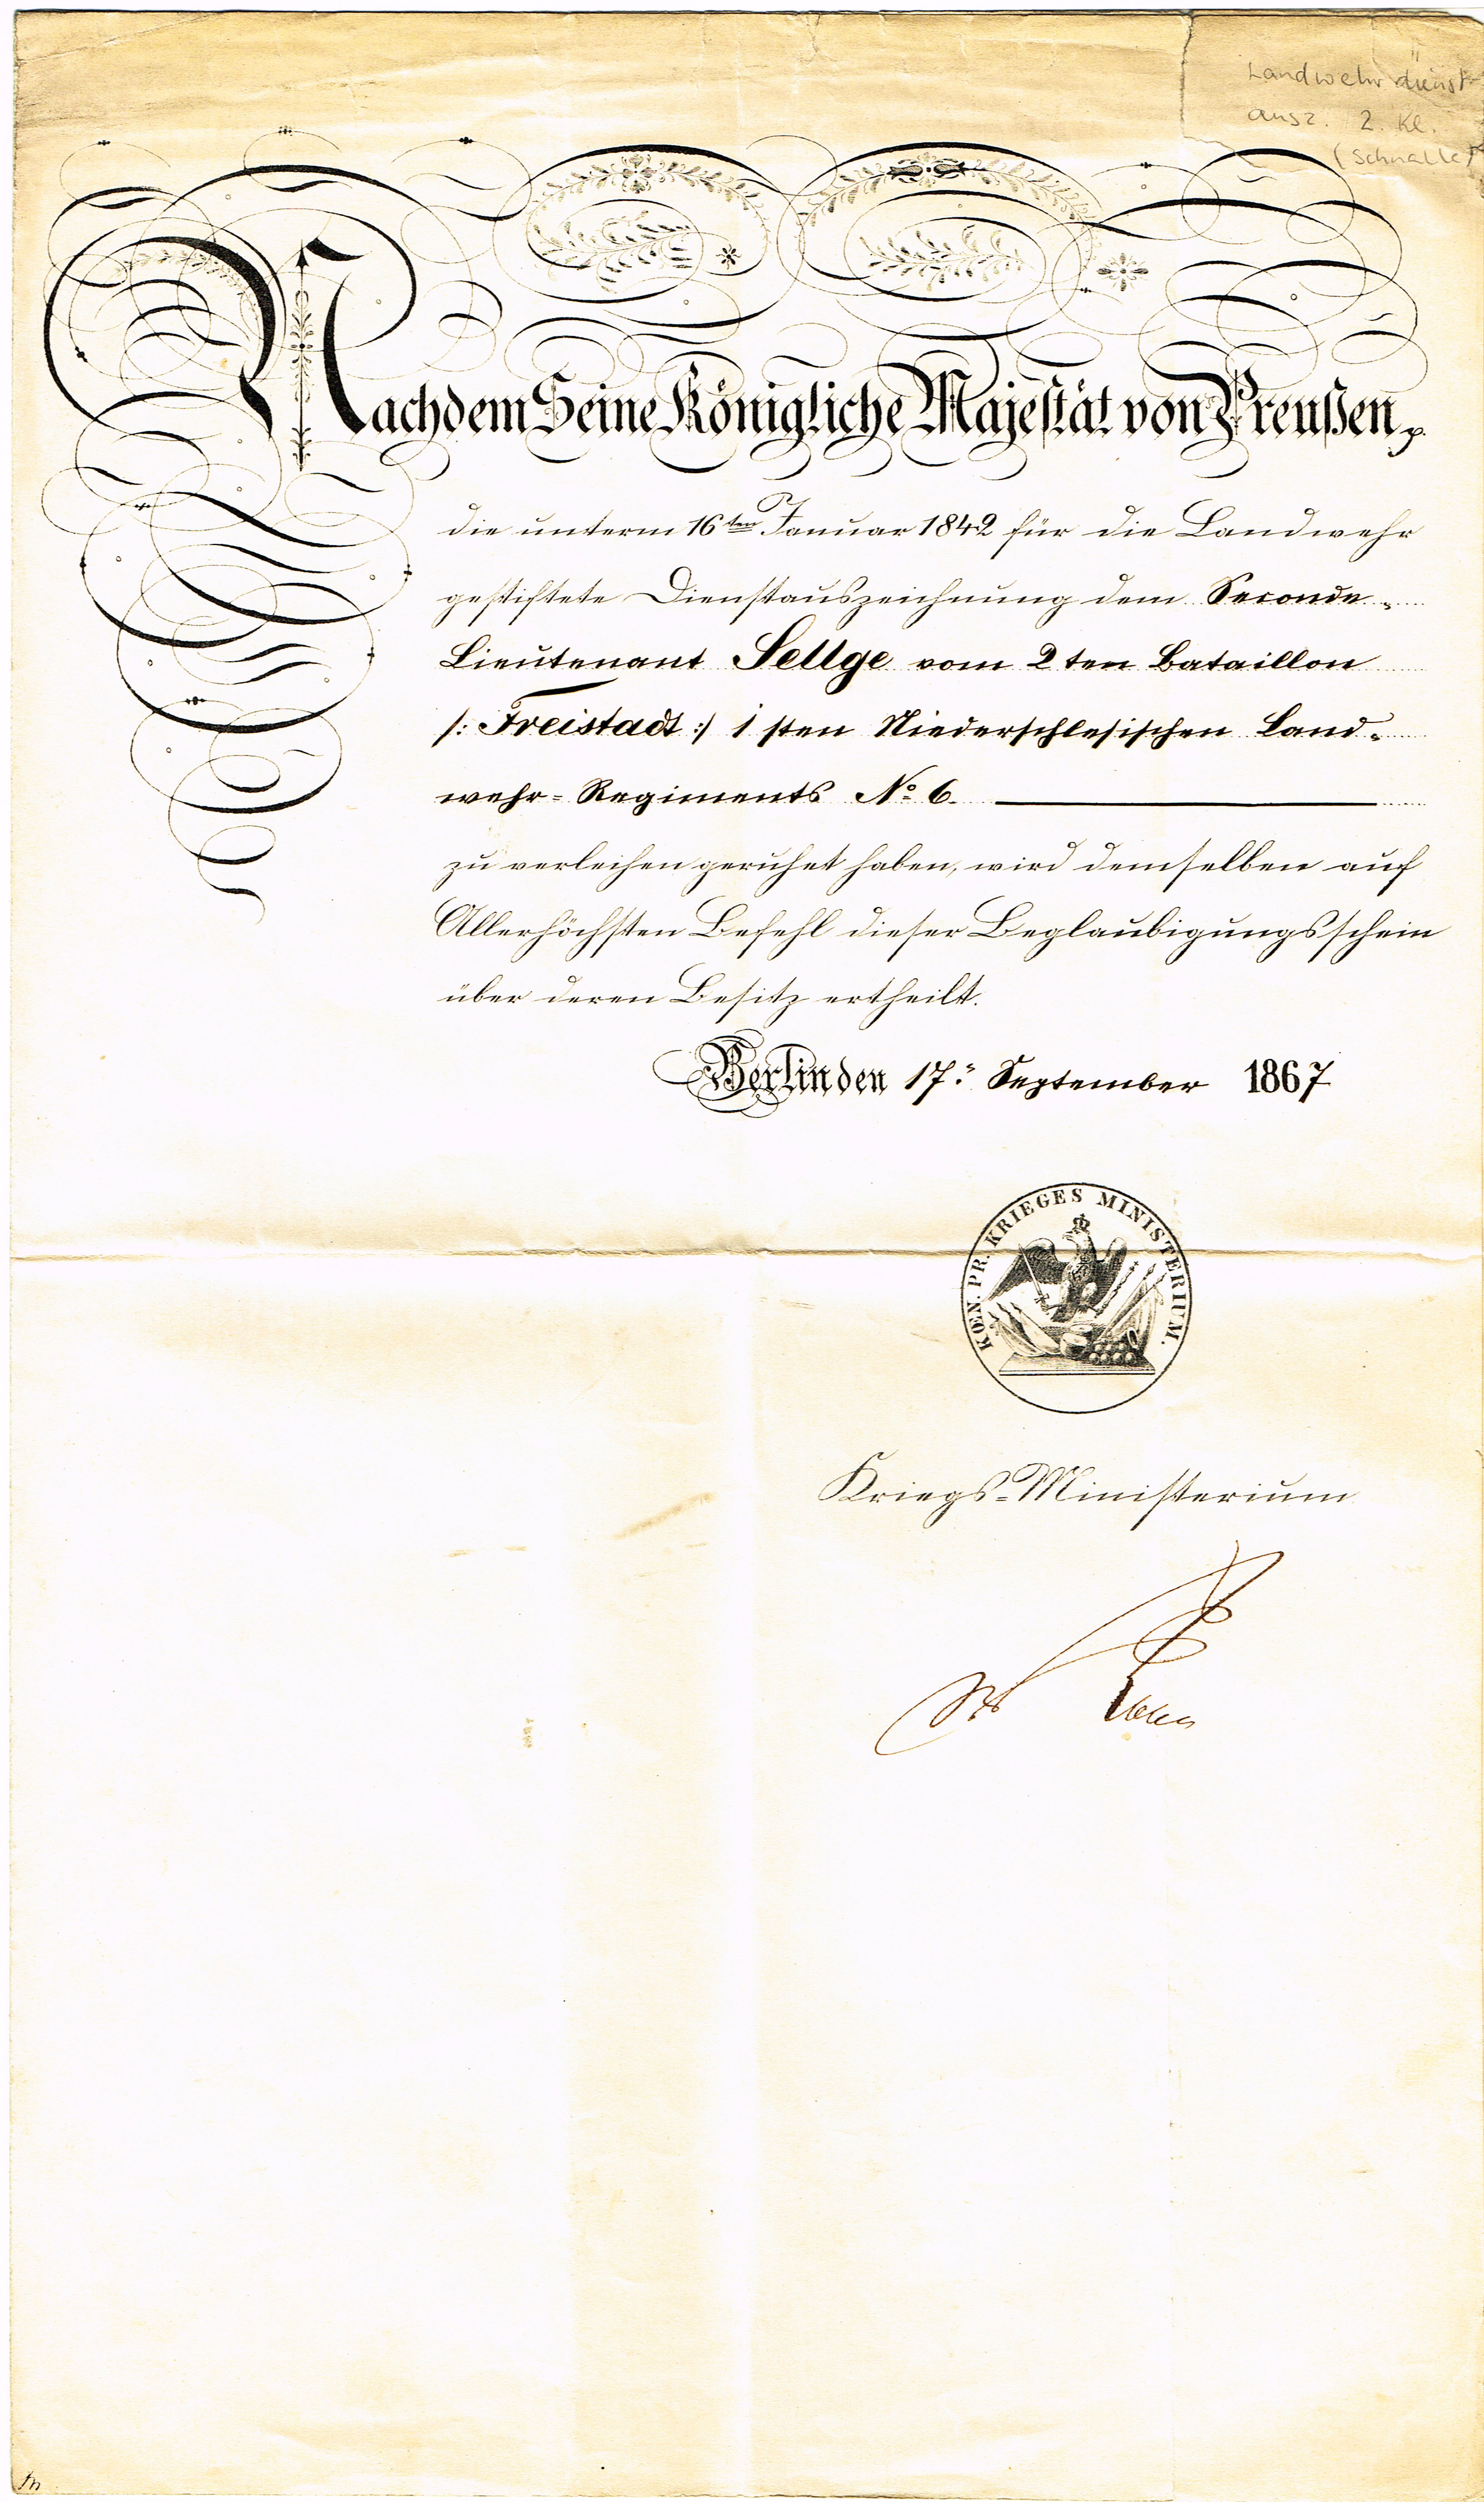 Landwehrdienst-
ausz. 2. Kl.
(Schnalle)
Nachdem Seine Königliche Majestät von Preußen p.
die unterm 16ten Januar 1842 für die Landwehr
gestiftete Dienstauszeichnung dem Seconde-
Lieutenant Sellge vom 2ten Bataillon
/: Freistadt :/ 1sten Niederschlesischen Land-
wehr-Regiments No 6.
zu verleihen geruhet haben, wird demselben auf
Allerhöchsten Befehl dieser Beglaubigungsschein
über deren Besitz ertheilt.
Berlin den 17: September 1867
KŒN. PR. KRIEGES MINISTERIUM.
Kriegs-Ministerium